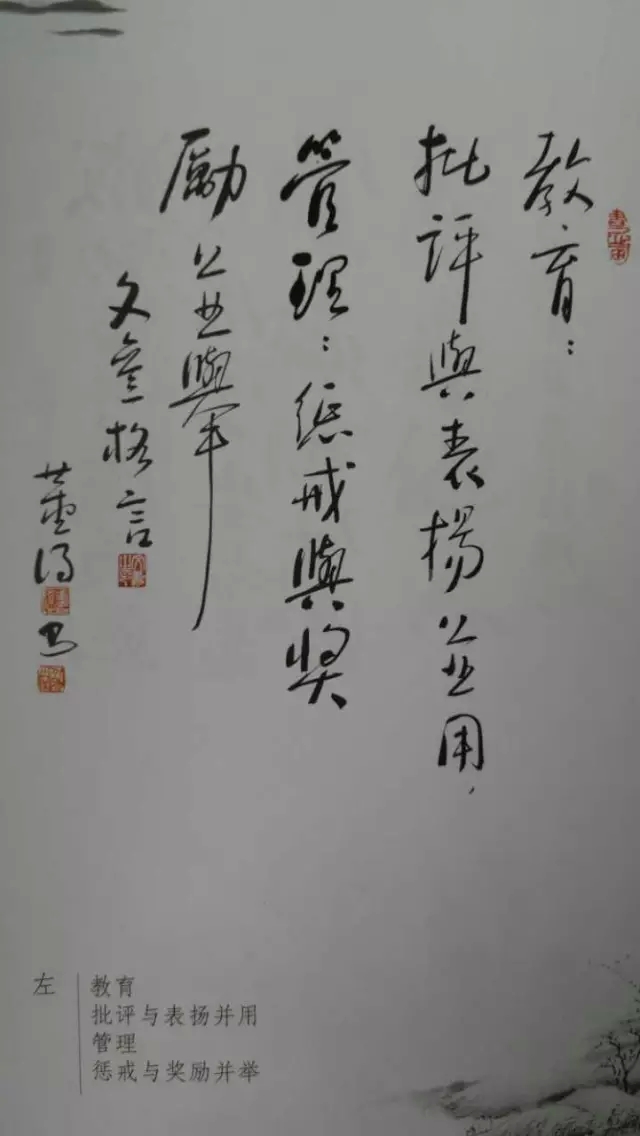 教育：
批評與表揚並用，
管理：惩戒與奖
勵並舉
文格言
左
教育
批评与表扬并用
管理
惩戒与奖励并举